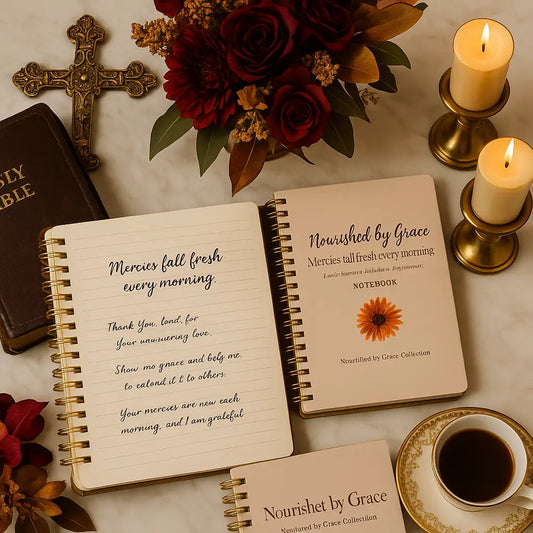 LY
BLE
Mercies fall fresh
every morning.
Thank You, lond, for
Your unuwering love.
Show mo gnace and belg me.
to eatond it t to others.
Your mercies are new each
morning, and I am grateful
Nourished by Grace
Mercies tall fresh every morning
NOTEBOOK
Nourtified by Grace Collection
Nourishet by Grace
Nentured by Grace Collution